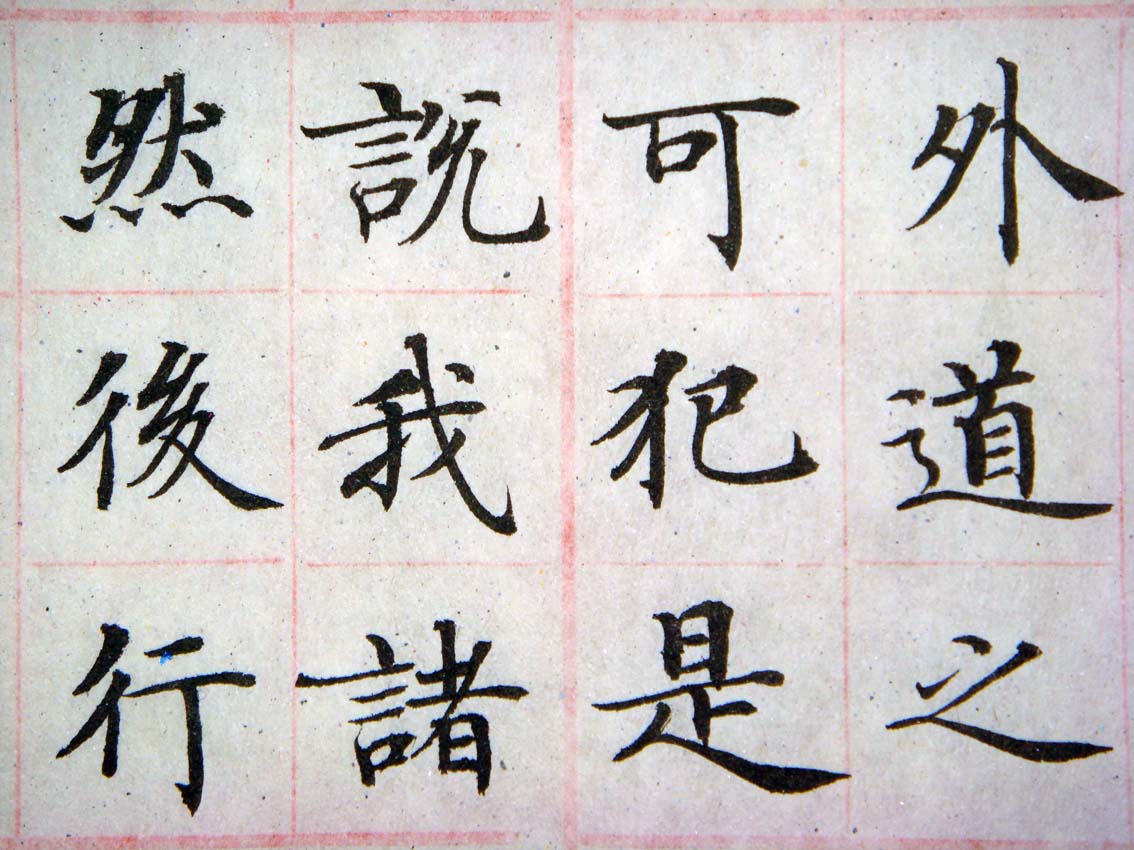 外道之
可犯是
說我諸
然後行